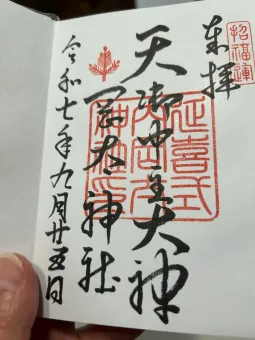 招福運
奉拝
天御中主大神
延喜式
岡太神社
令和七年九月廿五日